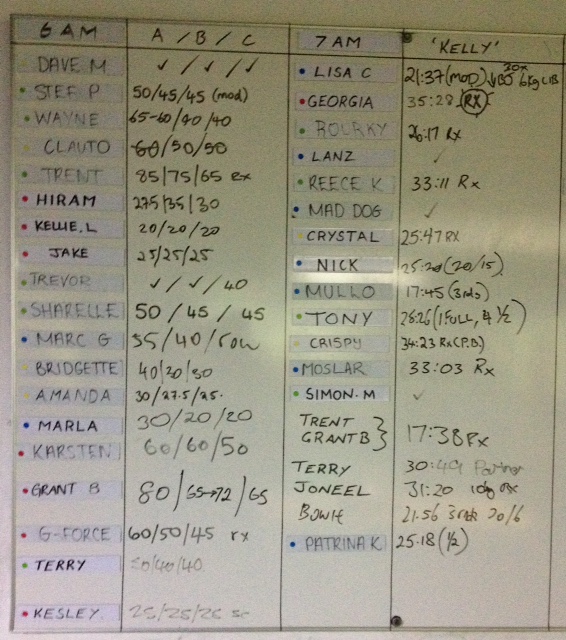 6 AM A / B / C
DAVE M ✓ / ✓ / ✓
STEF P 50/45/45 (mod)
WAYNE 65-60/40/40
CLAUTO 60/50/50
TRENT 85/75/65 Rx
HIRAM 27.5/35/30
KELLIE.L 20/20/20
JAKE 25/25/25
TREVOR ✓ / ✓ / 40
SHARELLE 50 / 45 / 45
MARC G 35/40/row
BRIDGETTE 40/20/30
AMANDA 30/27.5/25
MARLA 30/20/20
KARSTEN 60/60/50
GRANT B 80/65→72/65
G-FORCE 60/50/45 rx
TERRY 50/40/40
KESLEY 25/25/25
7 AM 'KELLY'
LISA C 21:37 (mod) ↓BJ 20x 6kg
GEORGIA 35:28 RX
ROURKY 26:17 Rx
LANZ ✓
REECE K 33:11 Rx
MAD DOG ✓
CRYSTAL 25:47 RX
NICK 25:20 (20/15)
MULLO 17:45 (3rds)
TONY 26:26 (1 FULL, 4 ½)
CRISPY 34:23 Rx (P.B)
MOSLAR 33:03 Rx
SIMON.M ✓
TRENT
GRANT B } 17:38 Rx
TERRY 30:49 Partner
JONEEL 31:20 10kg Rx
BOWH 21:56 3rds 20/6
PATRINA K 25:18 (½)